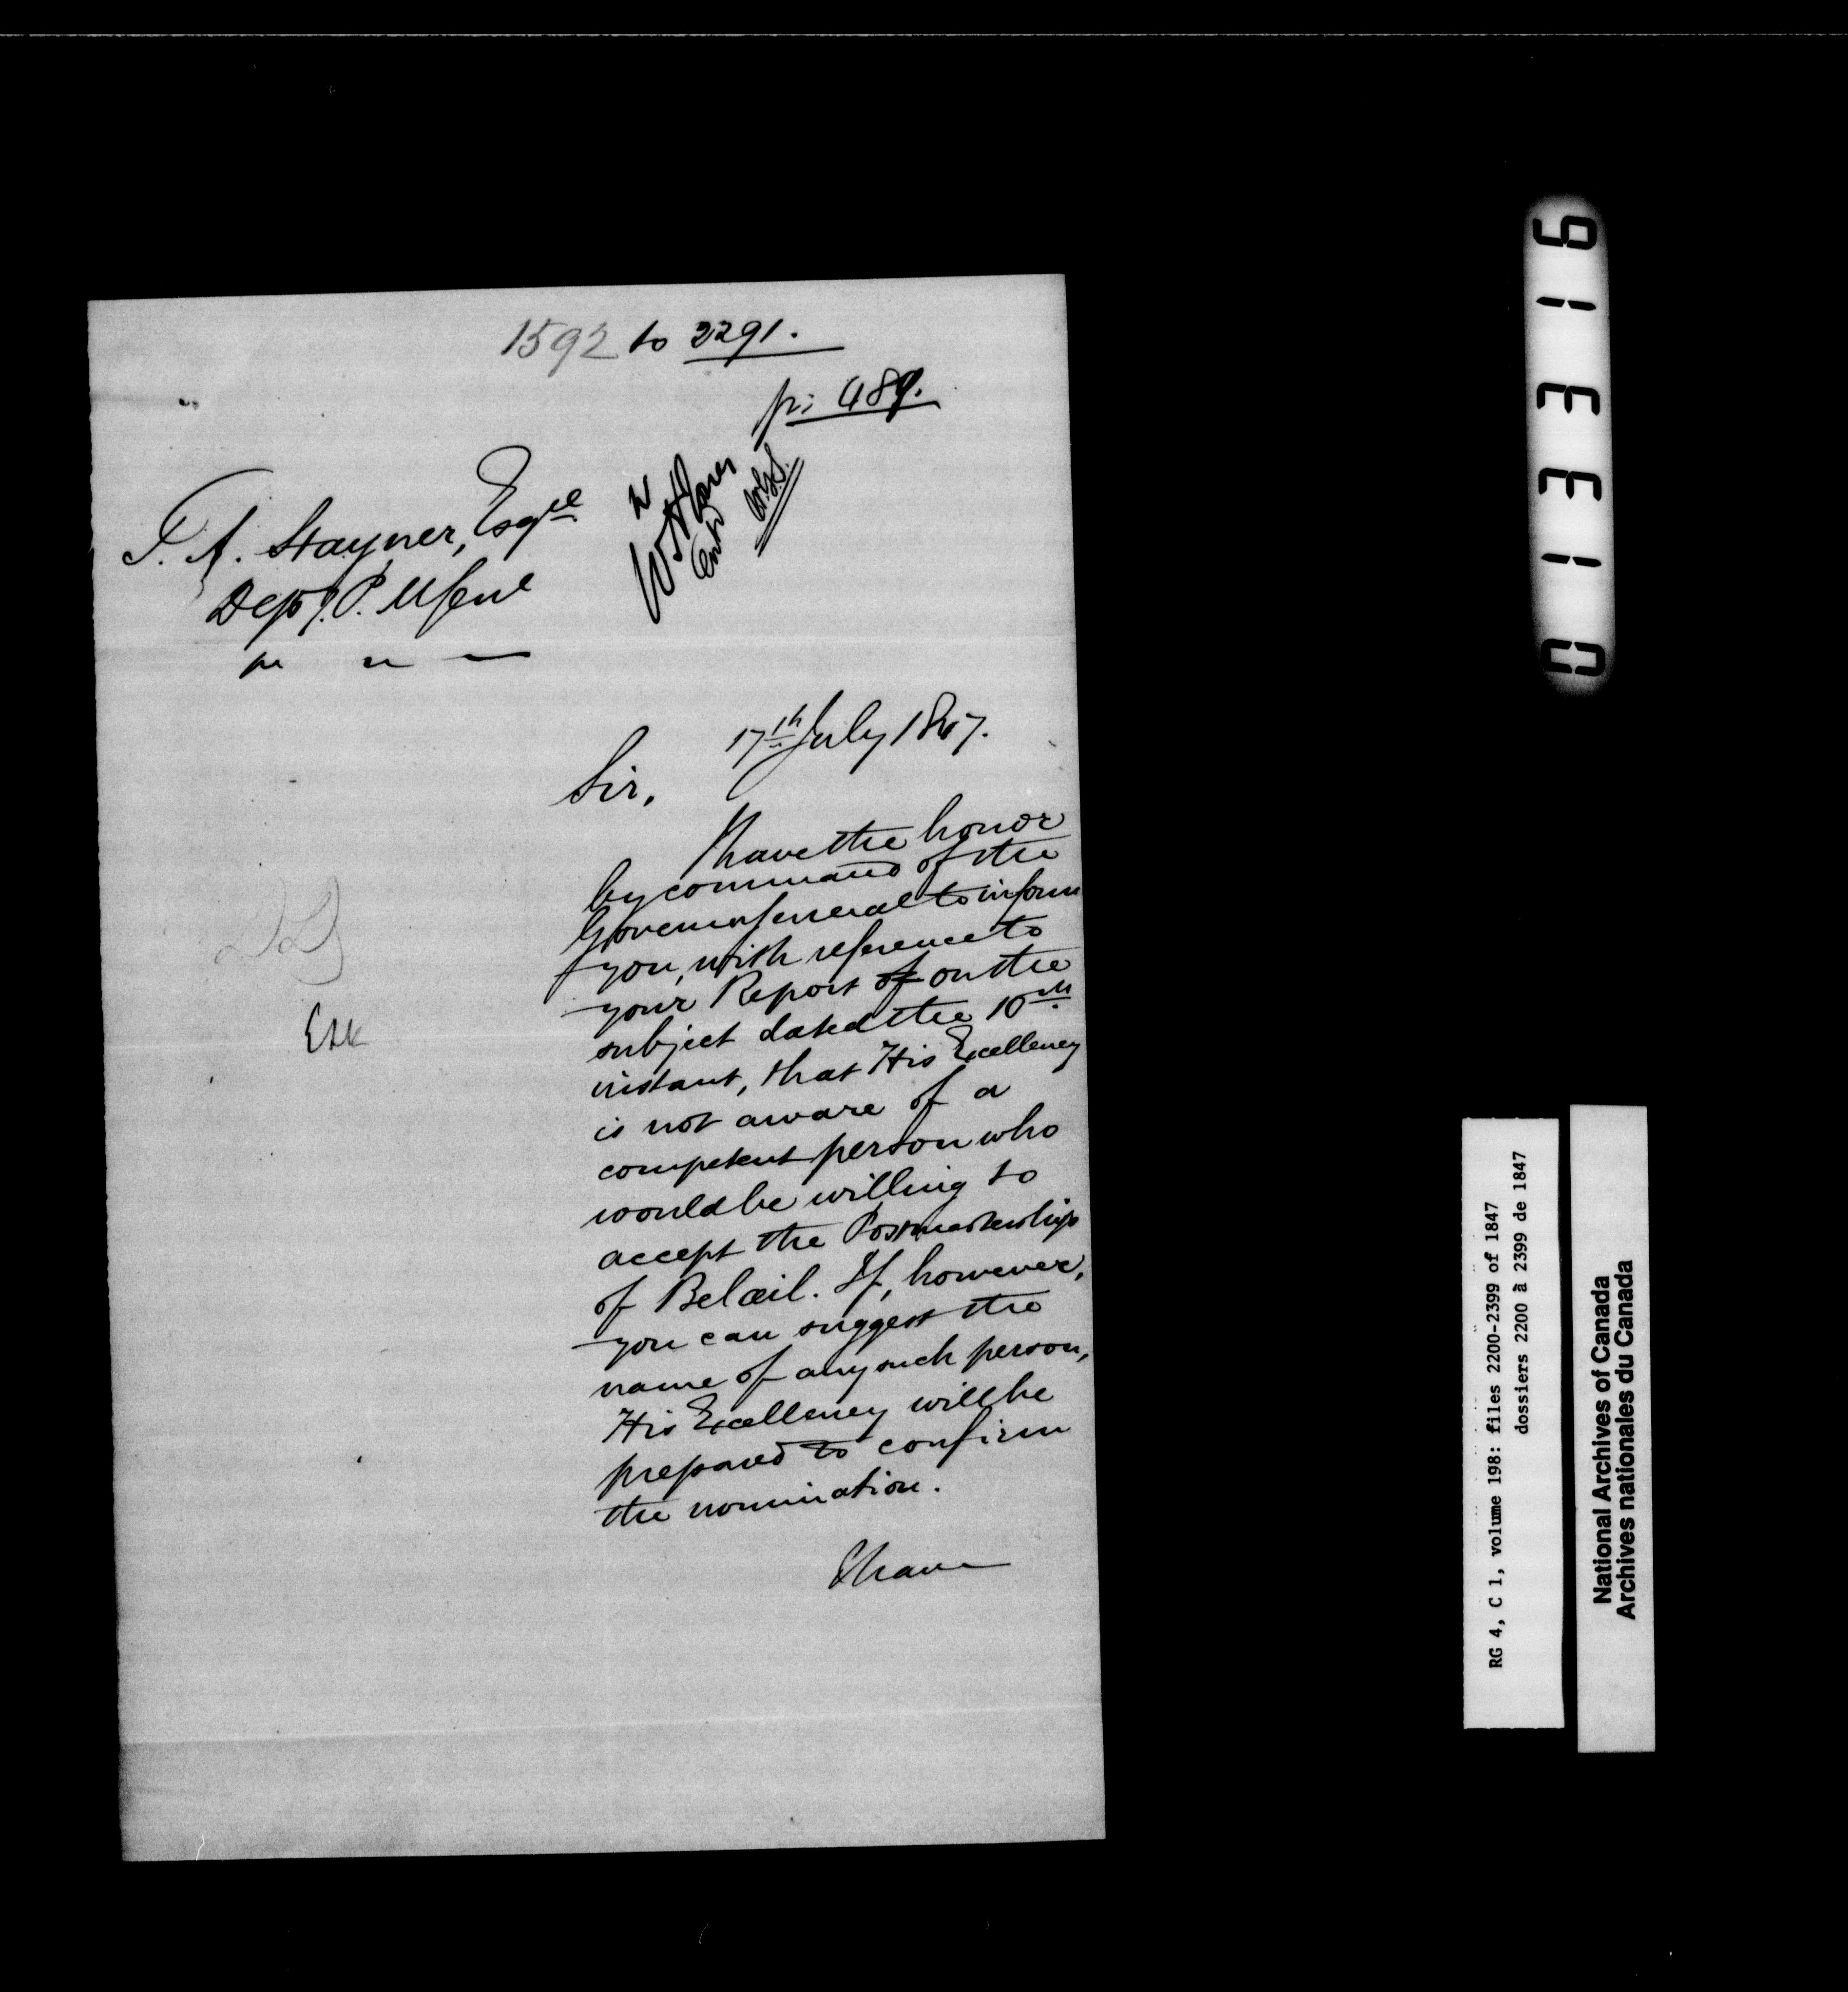 1592 to 2291.
p: 489.
T. A. Stayner, Esqre
Depy. P. M Genl
17th July 1847.
Sir,
I have the honor
by command of the
Governor General to inform
you, with reference to
your Report of on the
subject dated the 10th
instant, that His Excellency
is not aware of a
competent person who
would be willing to
accept the Postmastership
of Belœil. If, however,
you can suggest the
name of any such person,
His Excellency will be
prepared to confirm
the nomination.
I have
013316
RG 4, C 1, volume 198: files 2200-2399 of 1847
dossiers 2200 à 2399 de 1847
National Archives of Canada
Archives nationales du Canada